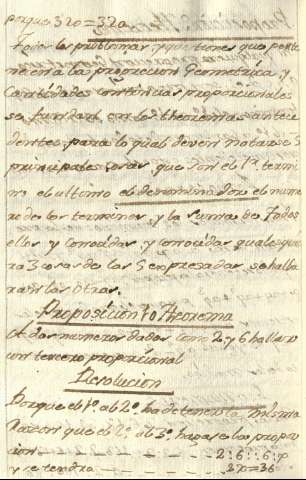 porque 320=320
Todos los problemas que tienen que perte
necen a la progrecion Geometrica y
Cantidades continuas proporcionales
se fundan en los theoremas antece
dentes, para lo qual deven notarse 5
principales cosas, que son el 1º termi
no el ultimo el denominador el nume
ro de los terminos, y la suma de todos
ellos y conosidas, y conosidas qualesquie
ra 3 cosas de las 5 expresadas se halla
ran las otras.
Proposicion 10 Theorema
A dos numeros dados como 2 y 6 hallar
un tercero proporcional
Resolucion
Porque el 1º al 2º ha de tener la misma
Razon que el 2º al 3º hagase la propor
cion - - - - 2:6::6:x
y se tendra - - - 2x=36